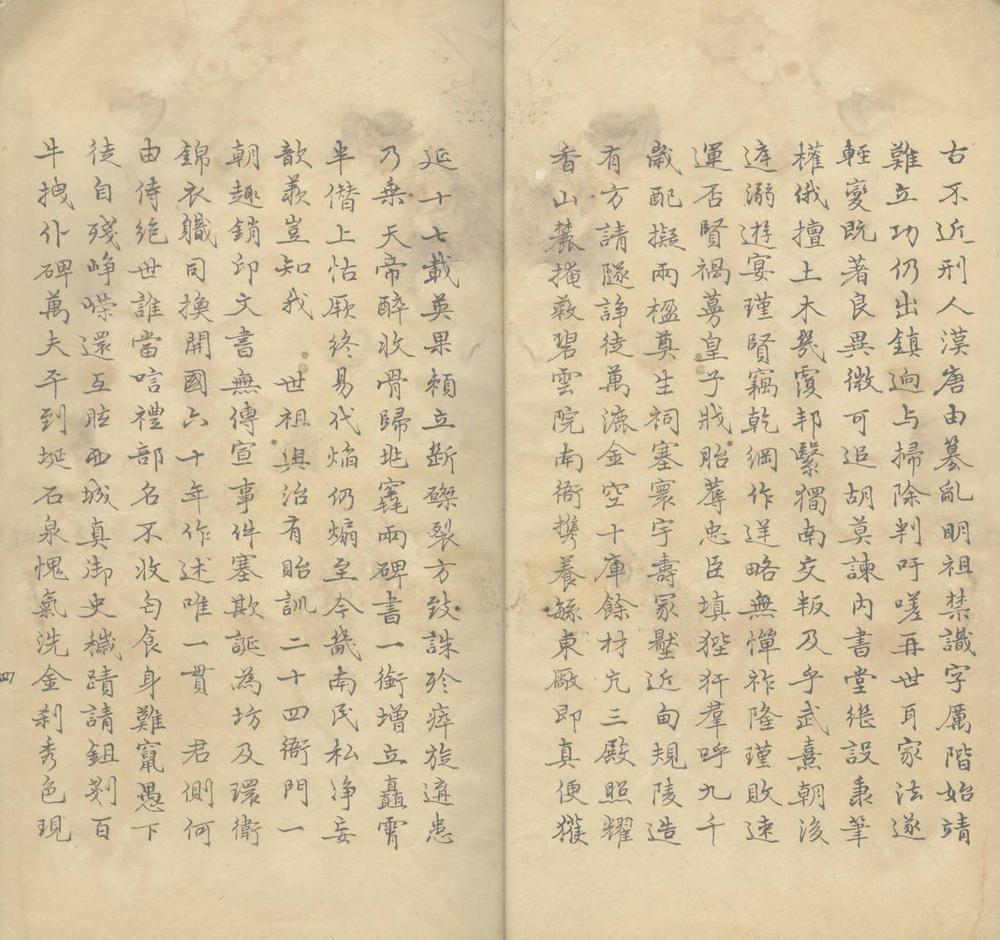 古不近刑人漢唐由篡亂明祖禁識字厲階始靖
難立功仍出鎮逈与掃除判吁嗟再世耳家法遂
輕變既著良異徴可追胡莫諫內書堂継設秉筆
權俄擅土木幾覆邦繄獨南交叛及乎武熹朝後
塵溺遊宴瑾賢竊乾綱作逆略無憚祚隆瑾敗速
運否賢禍蔓皇子戕胎蓐忠臣填狴犴羣呼九千
歲配擬兩楹奠生祠塞寰宇壽冢壓近甸規陵造
有方請隧諍徒萬漉金空十庫餘材亢三殿照耀
香山麓掩敚碧雲院南衙携養縣東廠即真便獲
延十七載英果頼立斷磔裂方致誅殄瘁旋遘患
乃乗天帝醉收骨歸兆窀兩碑書一銜増立矗霄
半僭上怙厥終易代焔仍煽至今畿南民私净妄
歆羨豈知我 世祖興治有貽訓二十四衙門一
朝趣銷印文書無傳宣事件塞欺誕為坊及環衛
錦衣職司換開國六十年作述唯一貫 君側何
由侍絶世誰當唁禮部名不收匄食身難竄愚下
徒自殘崢嶸還互眩西城真御史穢蹟請鉏剗百
牛拽仆碑萬夫平到埏石泉愧氣洗金刹秀色現
四